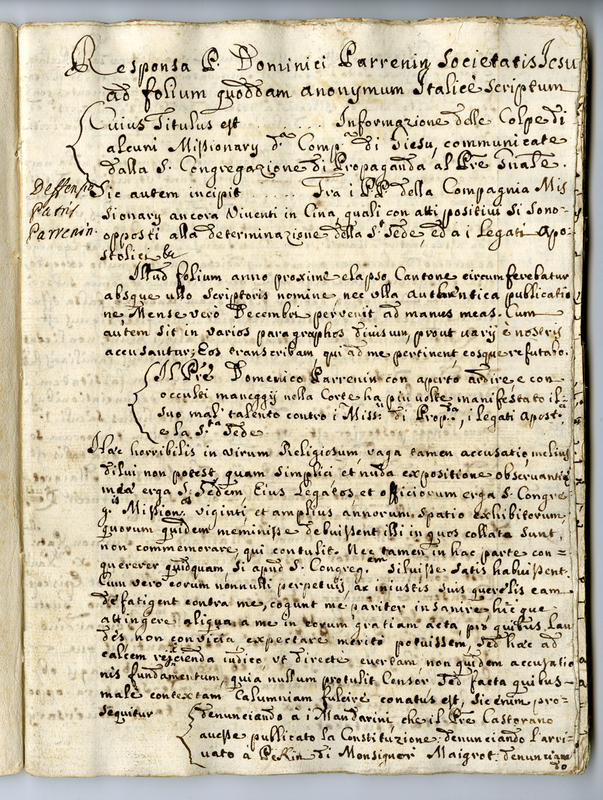 Responsa P. Dominici Parrenin Societatis Iesu
ad folium quoddam anonymum Italicè scriptum
Cuius Titulus est ........ Informazione delle Colpe di
alcuni Missionary d.ª Comp.ª di Giesù, communicate
dalla S. Congregazione di Propaganda al Pre Gnale.
Deffensio
Patris
Parrenin.
Sic autem incipit ........ Tra i PP. della Compagnia Mis
sionary ancora Viventi in Cina, quali con atti positivi si sono
opposti alla determinazione della S. Sede, ed a i Legati Apo=
stolici &c
Illud folium anno proxime elapso Cantone circumferebatur
absque ullo Scriptoris nomine, nec ulla authentica publicatio
ne, Mense vero Decembri pervenit ad manus meas. Cum
autem sit in varios paragraphos divisum, prout vary è nostris
accusantur; Eos transcribam qui ad me pertinent, eosque refutabo.
Il Pre Domenico Parrenin con aperto ardire e con
occulti maneggij nella Corte ha piu volte manifestato il
suo mal' talento contro i Miss.ij di Prop.da, i Legati Apost.ci
e la S.ta Sede
Hæc horribilis in virum Religiosum, vaga tamen accusatio, melius
dilui non potest, quam simplici et nuda expositione observantiæ
meæ erga S. Sedem, Eius Legatos et officiorum erga S. Congre
g.is Mission.os viginti et amplius annorum spatio exhibitorum
quorum quidem meminisse debuissent illi in quos collata sunt,
non commemorare, qui contulit. Nec tamen in hac parte con=
quererer quidquam si apud S. Congreg.em siluisse satis habuissent.
Cum vero eorum nonnulli perpetuis, ac iniustis suis querelis eam
defatigent contra me, cogunt me pariter insanire hic que
attingere aliqua a me in eorum gratiam acta, pro quibus Lau
des non convicia expectare merito potuissem, sed hæc ad
calcem reijcienda iudico ut directè evertam non quidem accusatio
nis fundamentum, quia nullum protulit Censor sed facta quibus
malè contextam Calumniam fulcire conatus est, sic enim pro=
sequitur
denunciando à i Mandarini che il Pre Castorano
avesse publicato la Constituzione; denunciando l'arri=
vato a PeKin di Monsignor Maigrot; denuncian
do